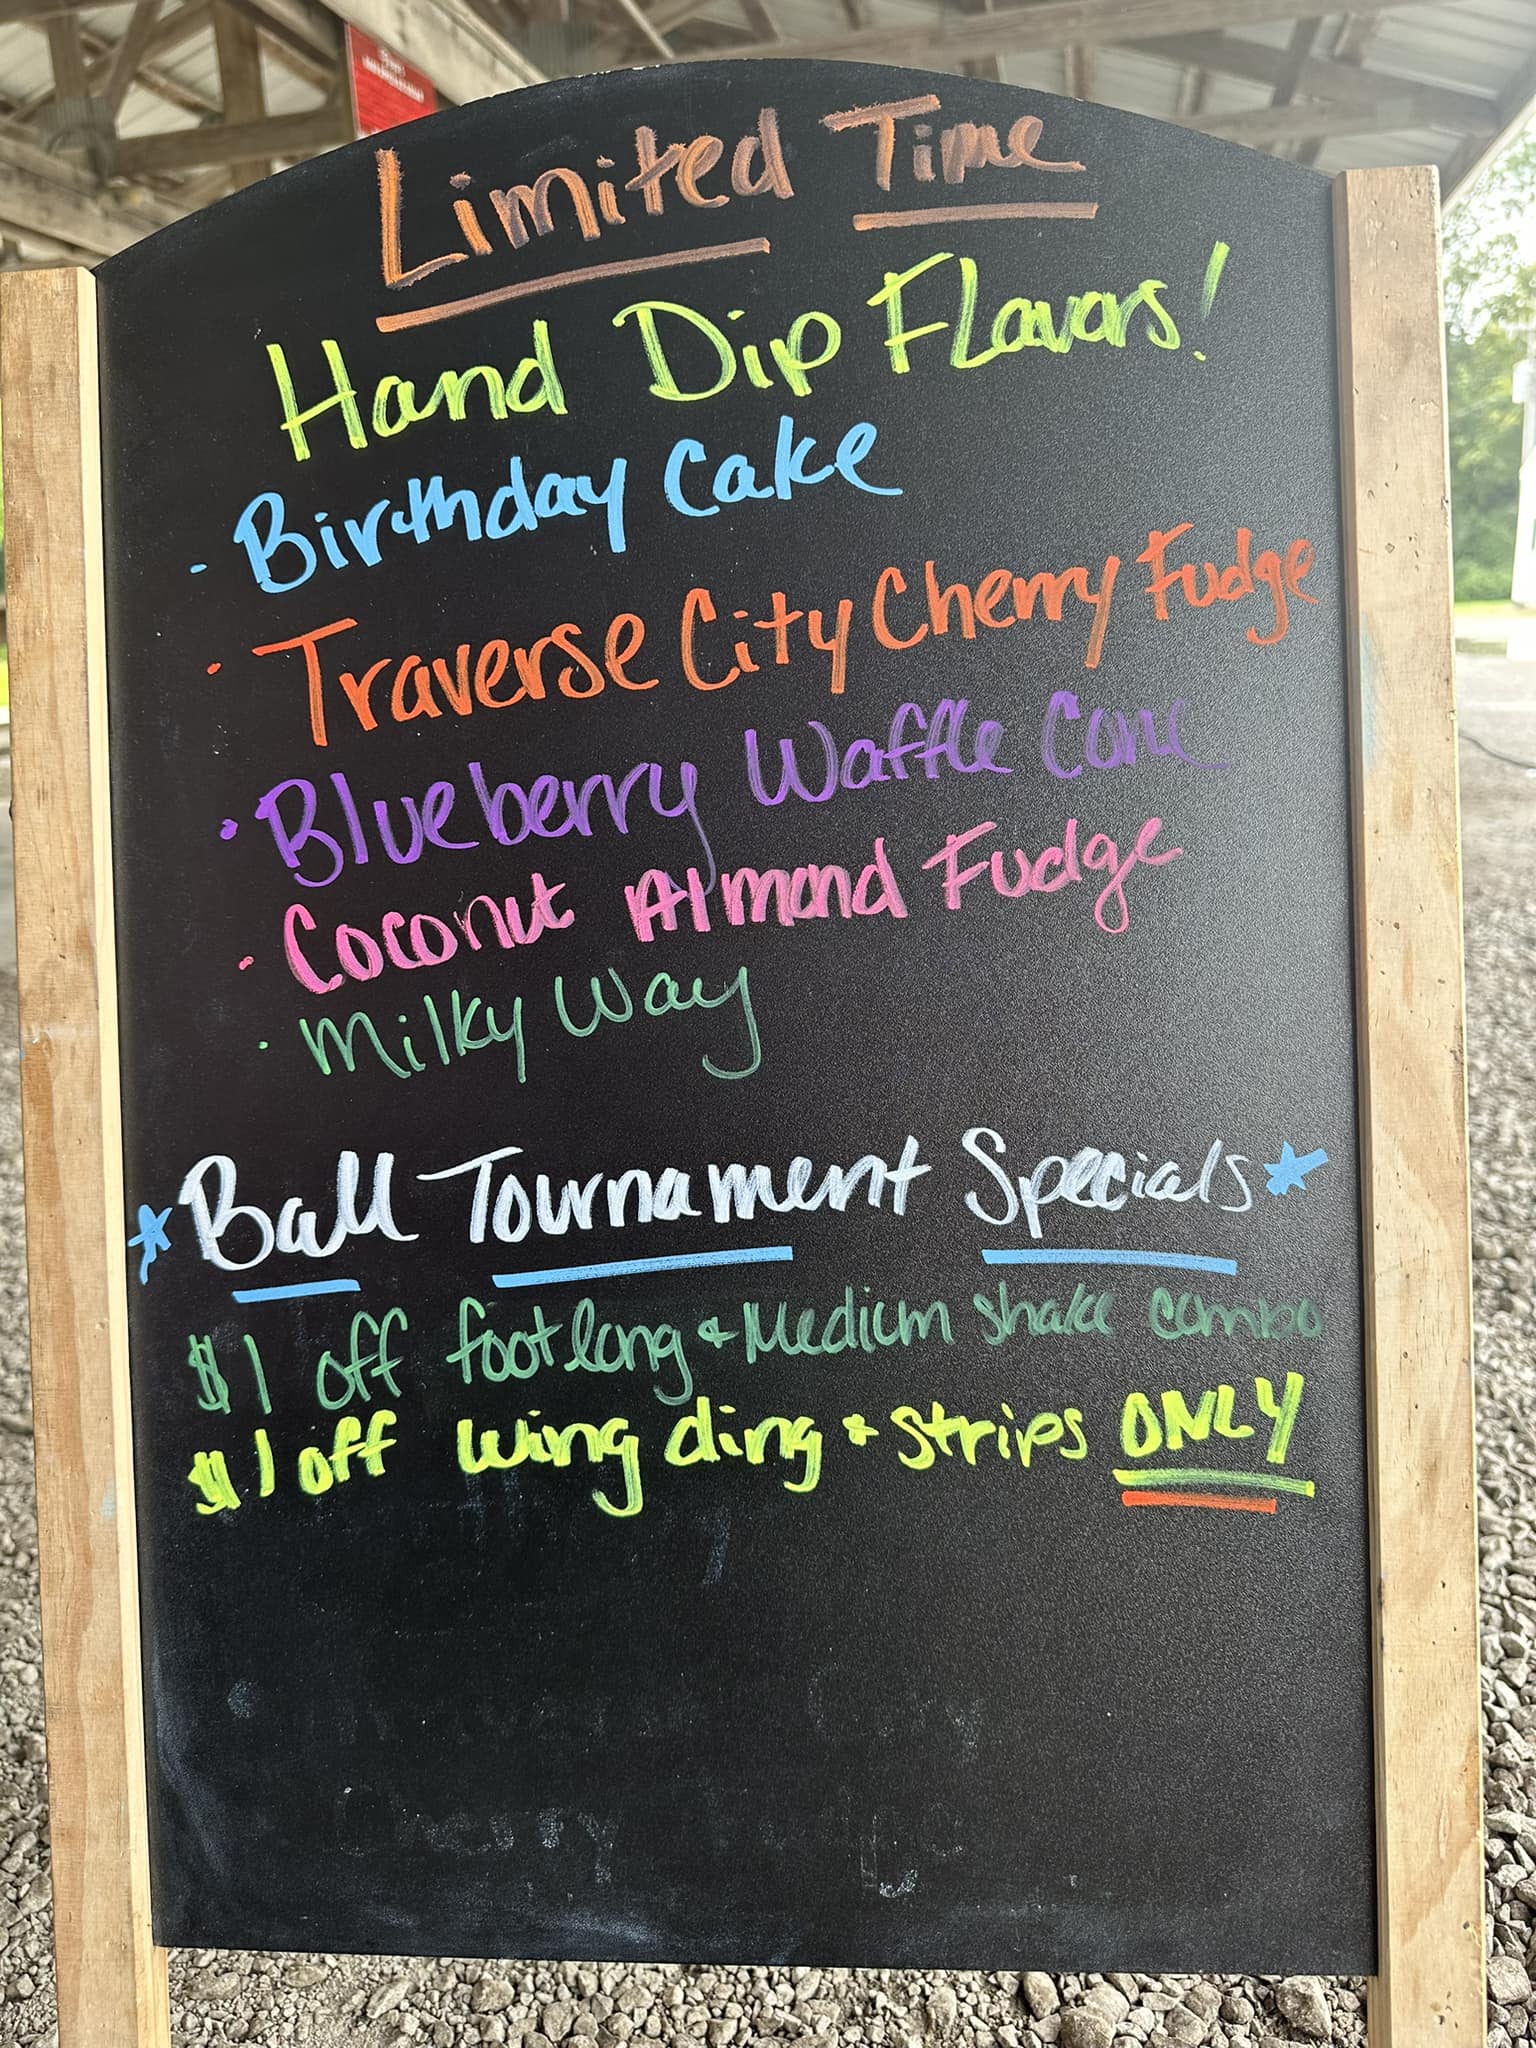 Limited Time
Hand Dip Flavors!
· Birthday Cake
· Traverse City Cherry Fudge
· Blueberry Waffle Cone
· Coconut Almond Fudge
· Milky Way
Ball Tournament Specials
$1 off footlong & Medium shake combo
$1 off wing ding & strips ONLY
Cherry